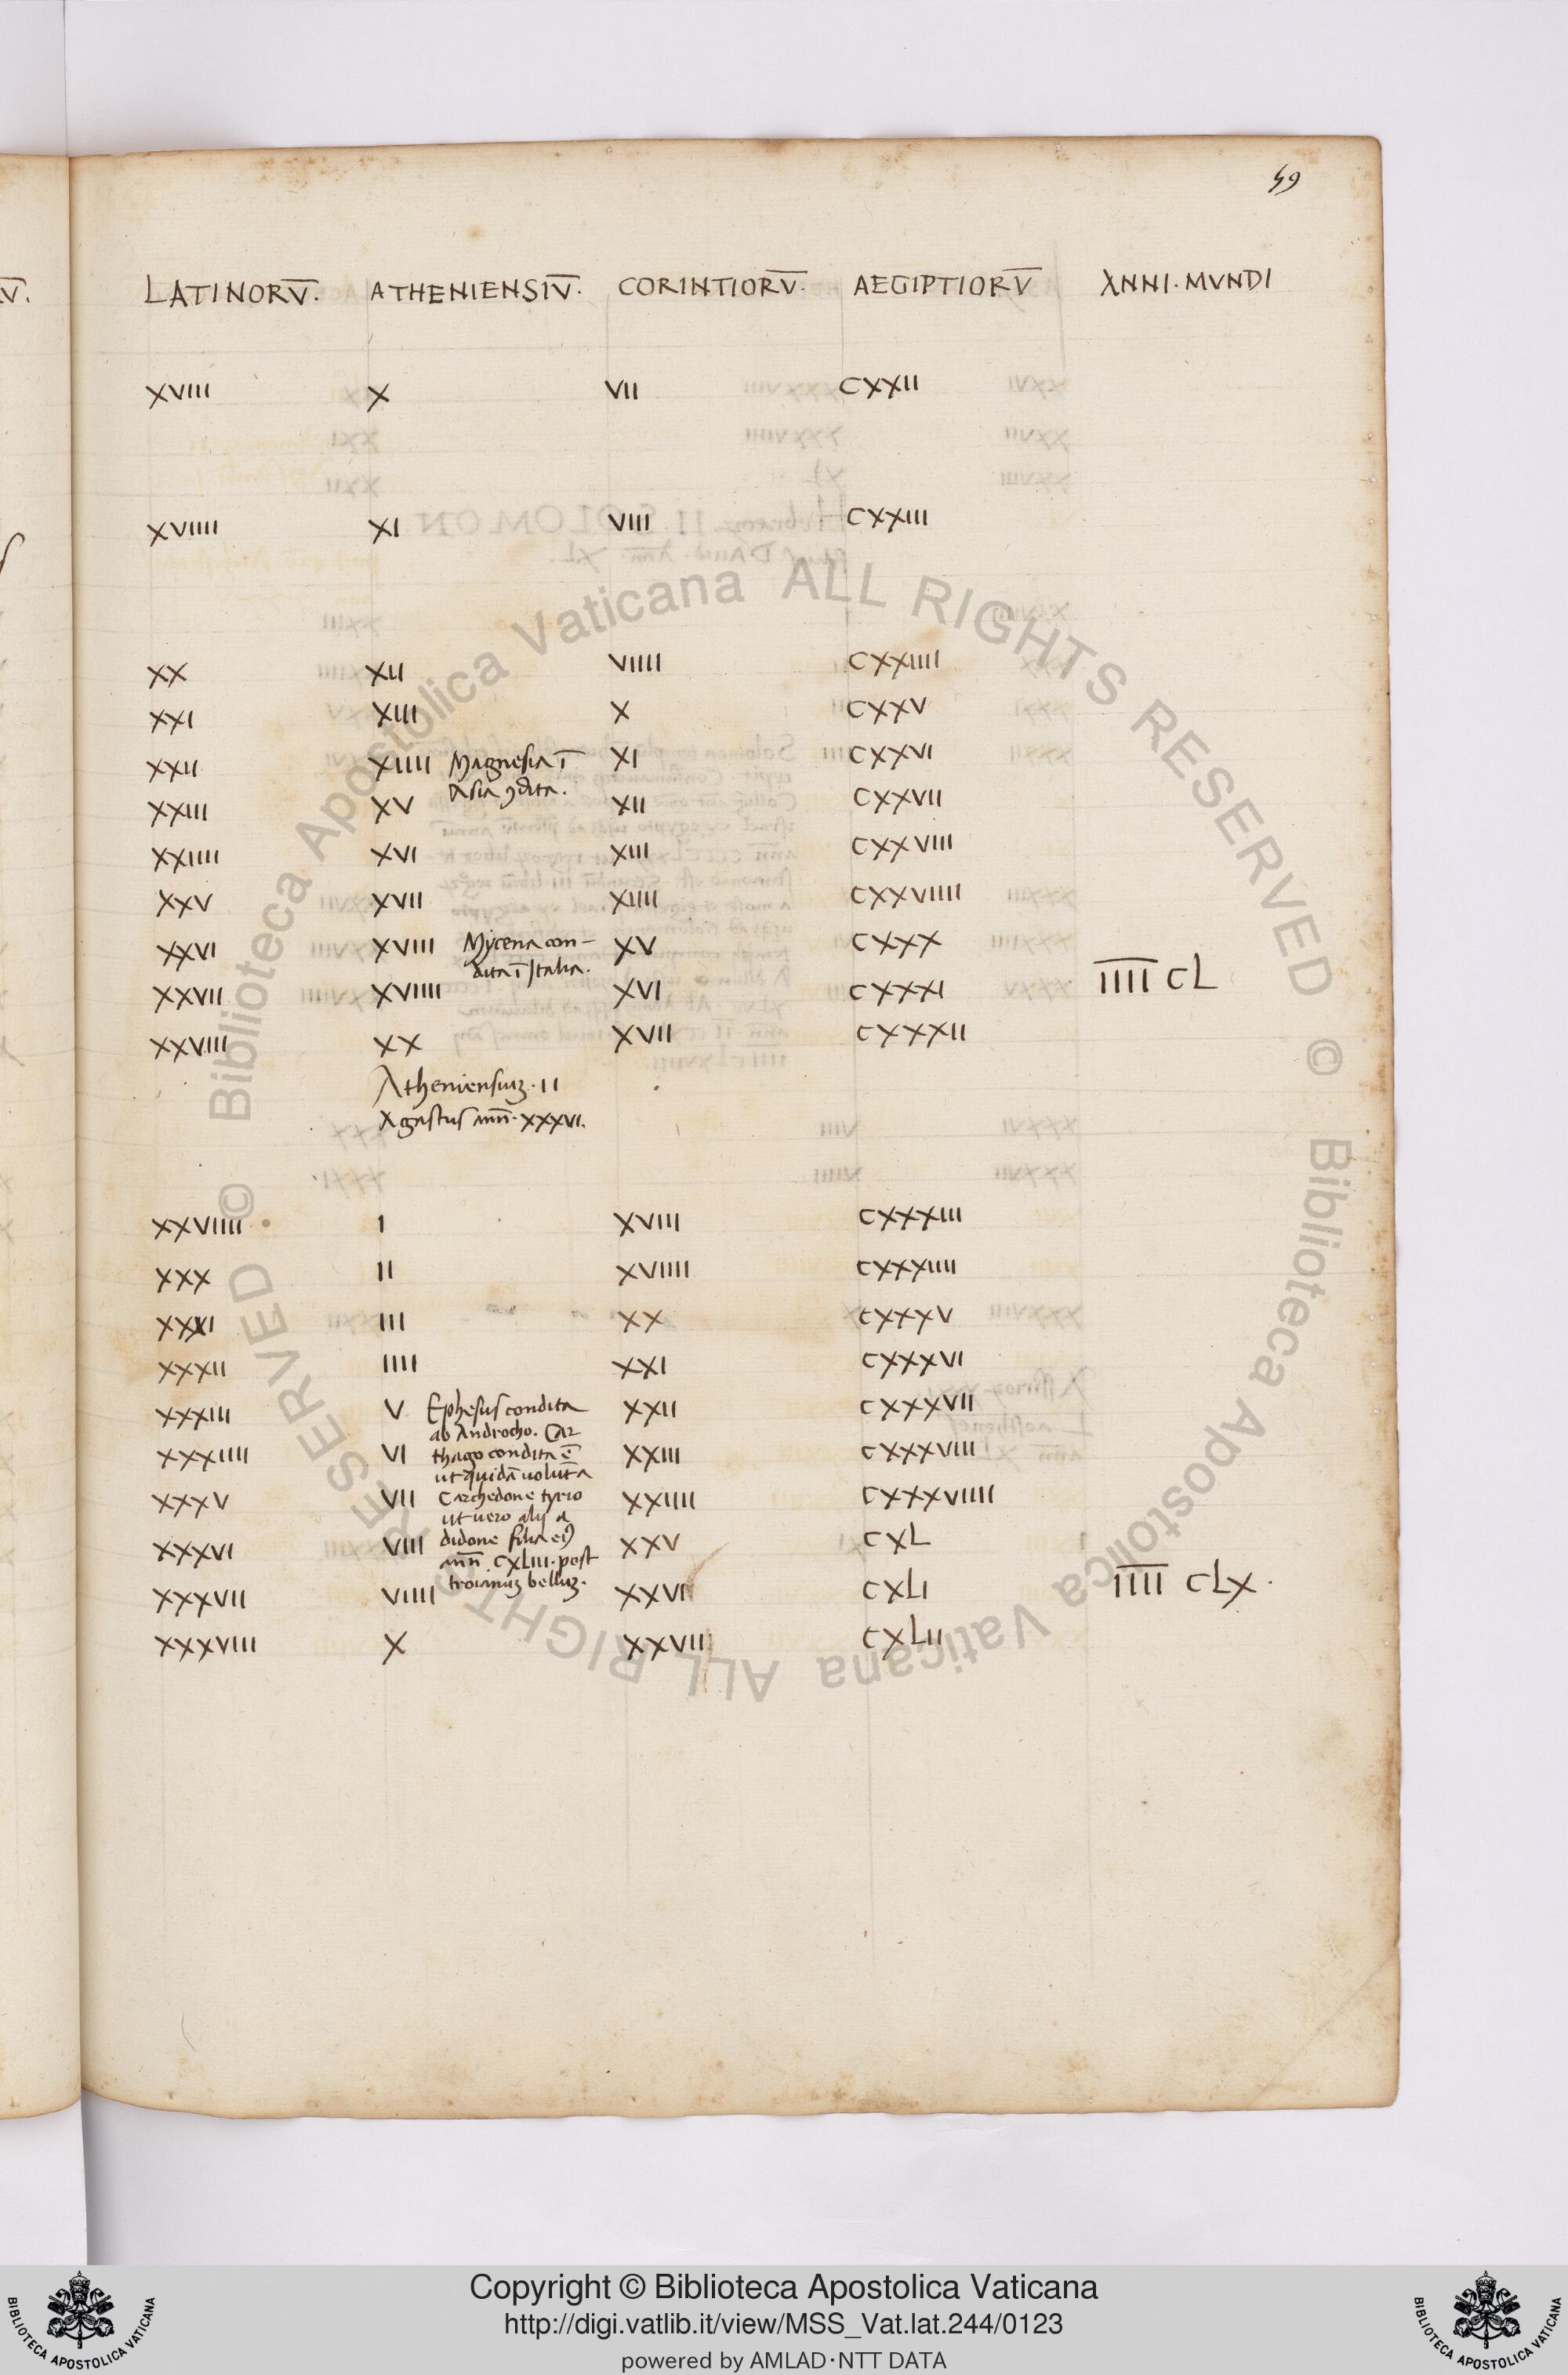 59
LATINORV̅. ATHENIENSIV̅. CORINTIORV̅. AEGIPTIORV̅ ANNI·MVNDI
XVIII X VII CXXII
XVIIII XI VIII CXXIII
XX XII VIIII CXXIIII
XXI XIII X CXXV
XXII XIIII Magnesia ı̅ XI CXXVI
Asia ꝯdita.
XXIII XV XII CXXVII
XXIIII XVI XIII CXXVIII
XXV XVII XIIII CXXVIIII
XXVI XVIII Mycena con- XV CXXX
dita ı̅ Italia.
XXVII XVIIII XVI CXXXI I̅I̅I̅I̅ CL
XXVIII XX XVII CXXXII
Atheniensiuʒ·II
Agastus an̅n̅·XXXVI.
XXVIIII I XVIII CXXXIII
XXX II XVIIII CXXXIIII
XXXI III XX CXXXV
XXXII IIII XXI CXXXVI
XXXIII V Ephesus condita XXII CXXXVII
ab Androcho. Car
XXXIIII VI thago condita e̅ XXIII CXXXVIII
ut quida̅ uolut̅a
XXXV VII Carchedone tyrio XXIIII CXXXVIIII
ut uero alij a
XXXVI VIII didone filia eiꝰ XXV CXL
an̅n̅ CXLIII·post
troianuʒ belluʒ.
XXXVII VIIII XXVI CXLI I̅I̅I̅I̅ CLX.
XXXVIII X XXVII CXLII
© Biblioteca Apostolica Vaticana ALL RIGHTS RESERVED © Biblioteca Apostolica Vaticana ALL RIGHTS RESERVED
Copyright © Biblioteca Apostolica Vaticana
http://digi.vatlib.it/view/MSS_Vat.lat.244/0123
powered by AMLAD·NTT DATA
BIBLIOTECA APOSTOLICA VATICANA
BIBLIOTECA APOSTOLICA VATICANA